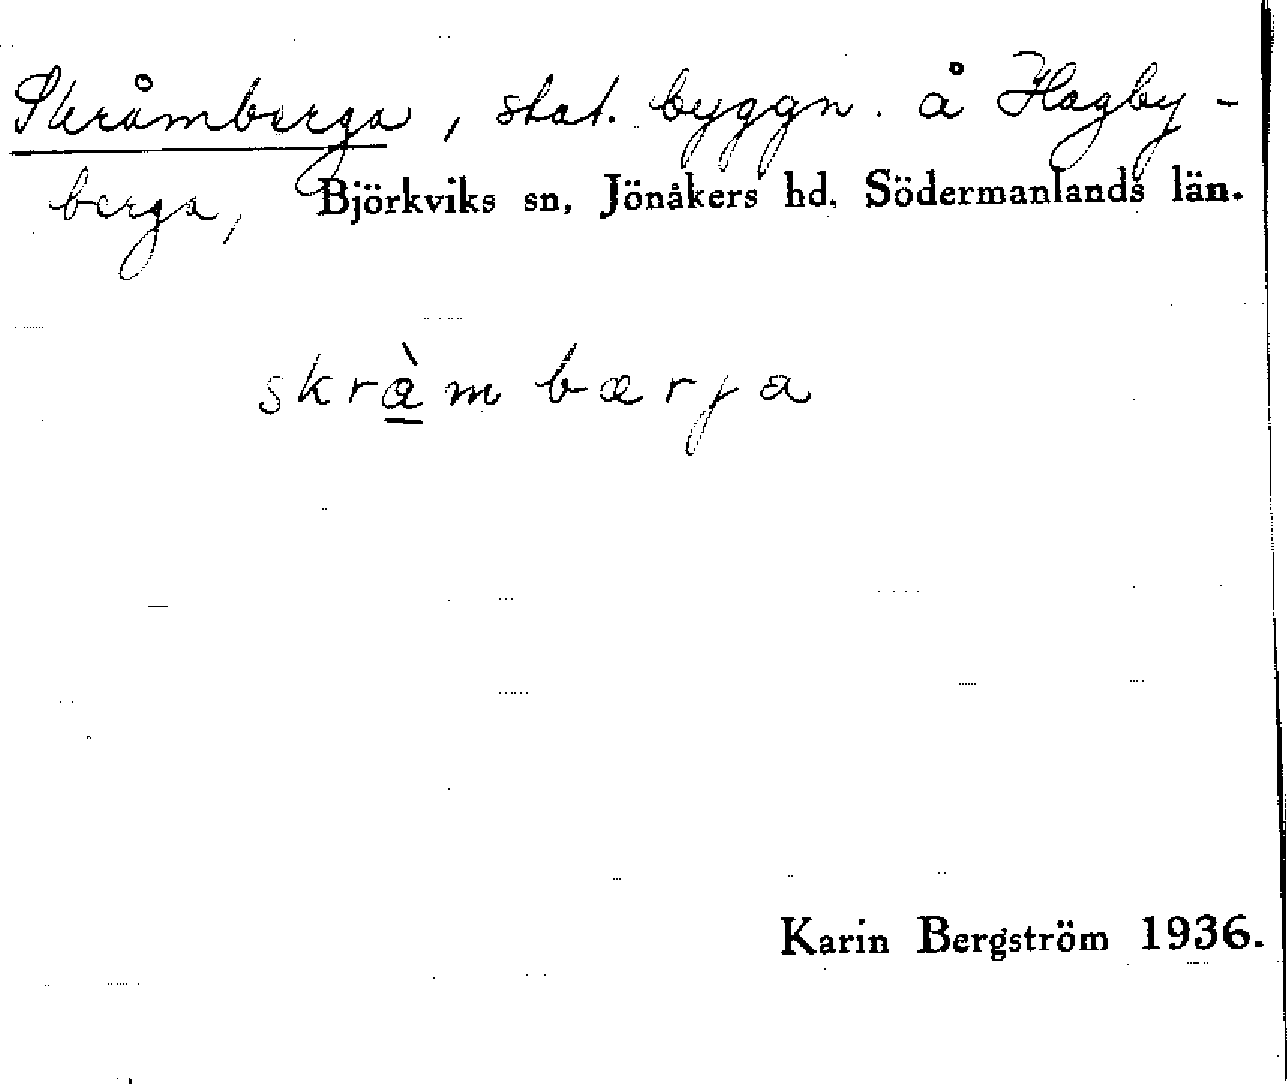 Skråmberga, stat. byggn. å Hagby-
berga, Björkviks sn, Jönåkers hd, Södermanlands län.
skràmbærja
Karin Bergström 1936.